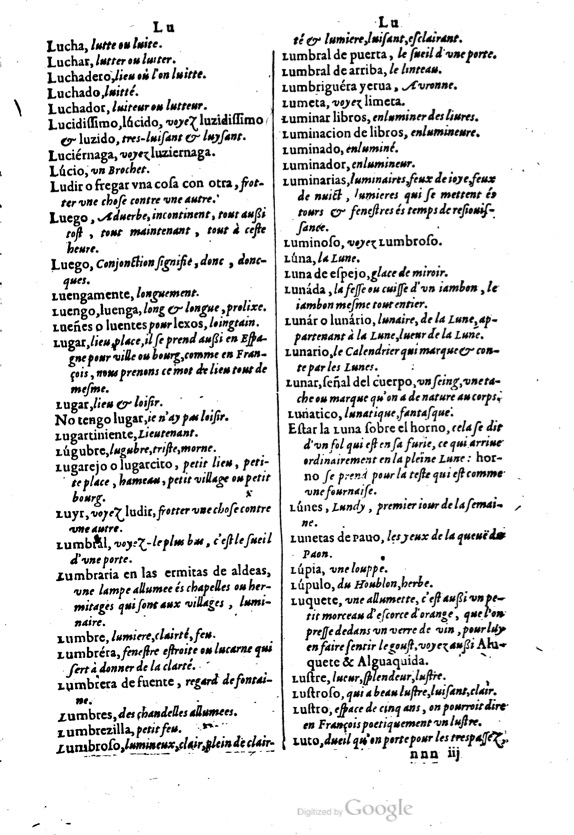 Lu
Lucha, lutte ou luite.
Luchar, lutter ou luiter.
Luchadero, lieu où l'on luitte.
Luchado, luitté.
Luchador, luiteur ou lutteur.
Lucidissimo, lúcido, voyez luzidissimo
& luzido, tres-luisant & luysant.
Luciérnaga, voyez luziernaga.
Lúcio, vn Brochet.
Ludir o fregar vna cosa con otra, frot-
ter vne chose contre vne autre.
Luego, Aduerbe, incontinent, tout aussi
tost, tout maintenant, tout à ceste
heure.
Luego, Conjonction signifie, donc, donc-
ques.
Luengamente, longuement.
Luengo, luenga, long & longue, prolixe.
Lueñes o luentes pour lexos, loingtain.
Lugar, lieu, place, il se prend aussi en Espa-
gne pour ville ou bourg, comme en Fran-
çois, nous prenons ce mot de lieu tout de
mesme.
Lugar, lieu & loisir.
No tengo lugar, je n'ay pas loisir.
Lugartiniente, Lieutenant.
Lúgubre, lugubre, triste, morne.
Lugarejo o lugarcito, petit lieu, peti-
te place, hameau, petit village ou petit
bourg.
Luyr, voyez ludir, frotter vne chose contre
vne autre.
Lumbral, voyez-le plus bas, c'est le sueil
d'vne porte.
Lumbraria en las ermitas de aldeas,
vne lampe allumee és chapelles ou her-
mitages qui sont aux villages, lumi-
naire.
Lumbre, lumiere, clairté, feu.
Lumbréra, fenestre estroite ou lucarne qui
sert à donner de la clarté.
Lumbrera de fuente, regard de fontai-
ne.
Lumbres, des chandelles allumees.
Lumbrezilla, petit feu.
Lumbroso, lumineux, clair, plein de clair-
Lu
té & lumiere, luisant, esclairant.
Lumbral de puerta, le sueil d'vne porte.
Lumbral de arriba, le linteau.
Lumbriguéra yerua, Auronne.
Lumeta, voyez limeta.
Luminar libros, enluminer des liures.
Luminacion de libros, enlumineure.
Luminado, enluminé.
Luminador, enlumineur.
Luminarias, luminaires, feux de ioye, feux
de nuict, lumieres qui se mettent és
tours & fenestres és temps de resiouis-
sance.
Luminoso, voyez Lumbroso.
Lúna, la Lune.
Luna de espejo, glace de miroir.
Lunáda, la fesse ou cuisse d'vn iambon, le
iambon mesme tout entier.
Lunár o lunário, lunaire, de la Lune, ap-
partenant à la Lune, lueur de la Lune.
Lunario, le Calendrier qui marque & con-
te par les Lunes.
Lunar, señal del cuerpo, vn seing, vne ta-
che ou marque qu'on a de nature au corps.
Lunático, lunatique, fantasque.
Estar la Luna sobre el horno, cela se dit
d'vn fol qui est en sa furie, ce qui arriue
ordinairement en la pleine Lune: hor-
no se prend pour la teste qui est comme
vne fournaise.
Lúnes, Lundy, premier iour de la semai-
ne.
Lunetas de pauo, les yeux de la queuë du
Paon.
Lúpia, vne louppe.
Lúpulo, du Houblon, herbe.
Luquete, vne allumette, c'est aussi vn pe-
tit morceau d'escorce d'orange, que l'on
presse dedans vn verre de vin, pour luy
en faire sentir le goust, voyez aussi Alu-
quete & Alguaquida.
Lustre, lueur, splendeur, lustre.
Lustroso, qui a beau lustre, luisant, clair.
Lustro, espace de cinq ans, on pourroit dire
en François poetiquement vn lustre.
Luto, dueil qu'on porte pour les trespassez,
nnn iij
Digitized by Google